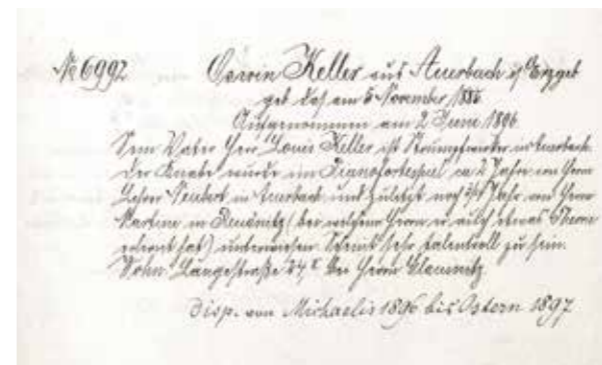 № 6992 Oswin Keller aus Auerbach i/ Erzgeb
geb das am 5 November 1885
Aufgenommen am 2 Juni 1896.
Sein Vater Herr Louis Keller ist Strumpfwirker in Auerbach.
Der Knabe wurde im Pianofortespiel ca 2 Jahre von Herrn
Lehrer Neubert in Auerbach und zuletzt noch Jahr von Herrn
Martin in (bei welchem Herrn er auch etwas Theorie
gelernt hat) unterwiesen. Scheint sehr talentvoll zu sein.
Wohn. Langestraße 24, II bei Herrn
Disp. von Michaelis 1896 bis Ostern 1897